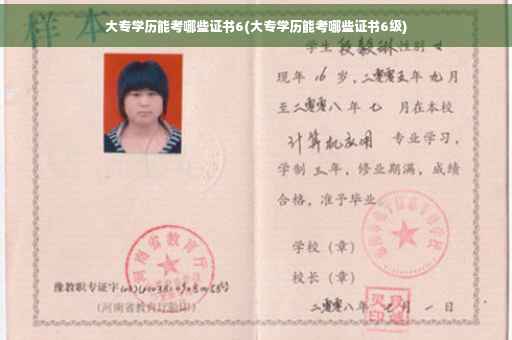 大专学历能考哪些证书6(大专学历能考哪些证书6级)
样本
学生段毅琳性别女
现年16岁，二零零五年九月
至二零零八年七月在本校
计算机应用 专业学习，
学制三年，修业期满，成绩
合格，准予毕业
学校（章）
校长（章）
二零零八年七月一日
河南省教育厅
豫教职专证字
(河南省教育厅验印)